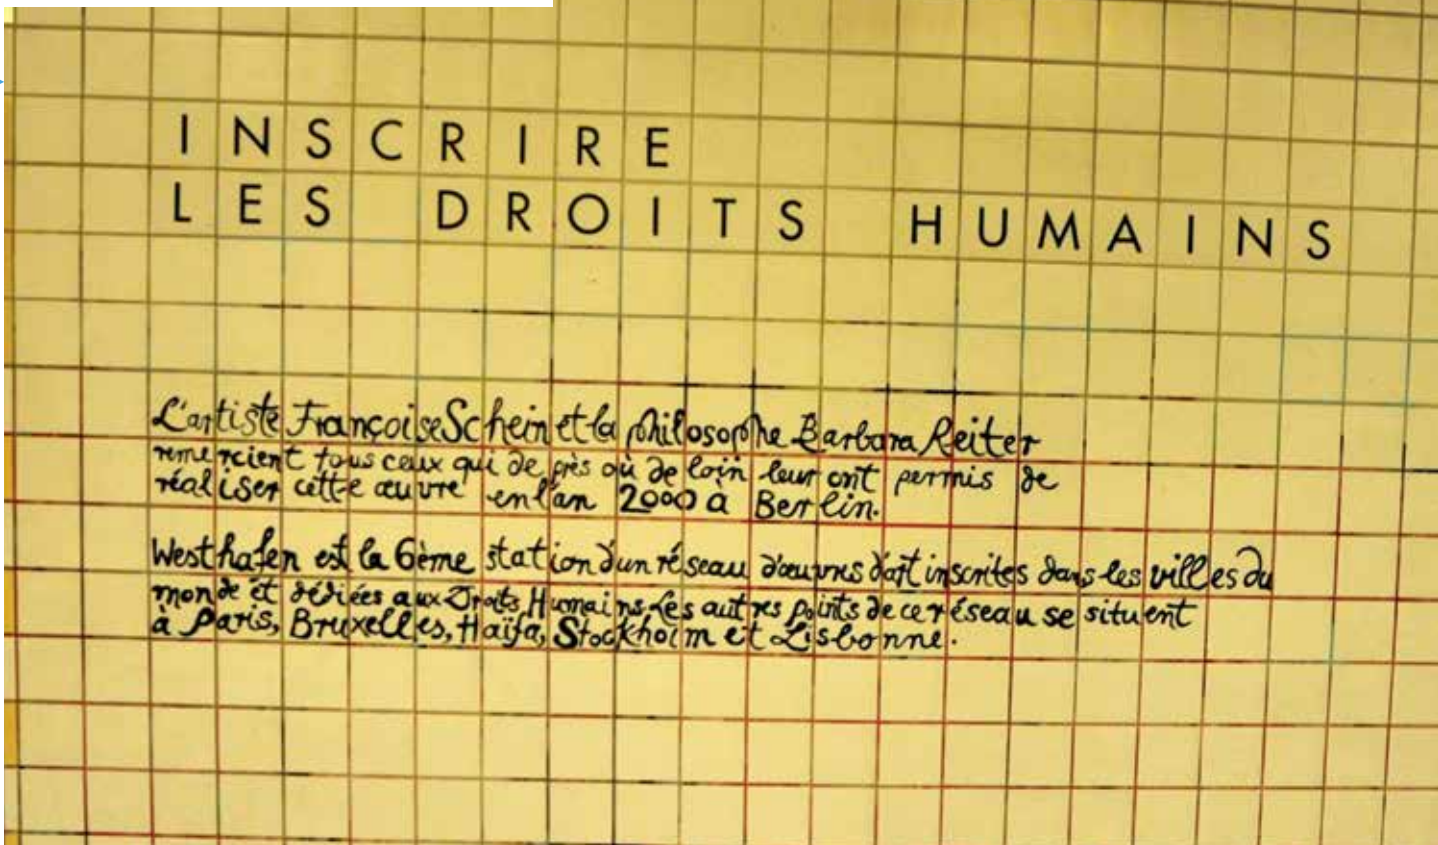 INSCRIRE
LES DROITS HUMAINS
L'artiste Françoise Schein et la philosophe Barbara Reiter
remercient tous ceux qui de près où de loin leur ont permis de
réaliser cette œuvre en l'an 2000 à Berlin.
Westhafen est la 6ème station d'un réseau d'œuvres d'art inscrites dans les villes du
monde et dédiées aux Droits Humains. Les autres points de ce réseau se situent
à Paris, Bruxelles, Haïfa, Stockholm et Lisbonne.